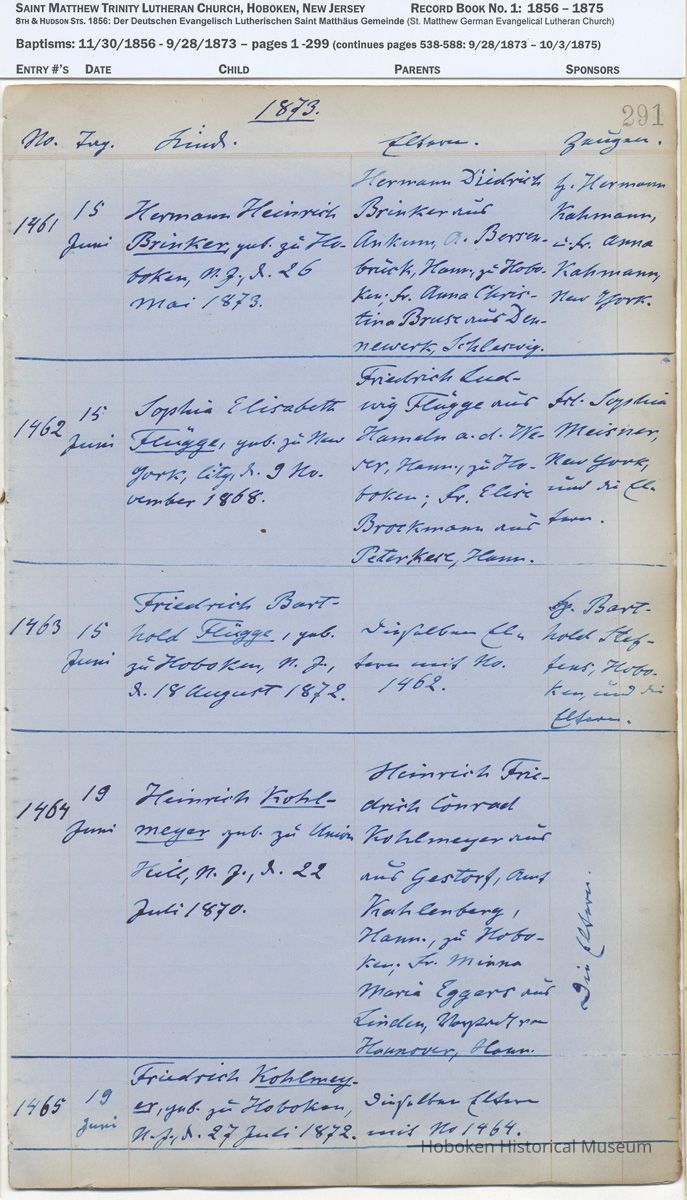 SAINT MATTHEW TRINITY LUTHERAN CHURCH, HOBOKEN, NEW JERSEY RECORD BOOK NO. 1: 1856 – 1875
8TH & HUDSON STS. 1856: Der Deutschen Evangelisch Lutherischen Saint Matthäus Gemeinde (St. Matthew German Evangelical Lutheran Church)
Baptisms: 11/30/1856 - 9/28/1873 – pages 1 -299 (continues pages 538-588: 9/28/1873 – 10/3/1875)
ENTRY #'S DATE CHILD PARENTS SPONSORS
1873.
291
No. Tag. Kind. Eltern. Zeugen.
1461
15
Juni
Hermann Heinrich
Brinker, geb. zu Ho-
boken, N. J., d. 26
Mai 1873.
Hermann Diedrich
Brinker aus
Ankum, A. Bersen-
brück, Hann., zu Hobo-
ken; Fr. Anna Chris-
tina Bruse aus Den-
newerk, Schleswig.
H. Hermann
Kahmann,
u. Fr. Anna
Kahmann,
New York.
1462
15
Juni
Sophia Elisabeth
Flügge, geb. zu New
York, City, d. 9 No-
vember 1868.
Friedrich Lud-
wig Flügge aus
Hameln a. d. We-
ser, Hann., zu Ho-
boken; Fr. Elise
Brockmann aus
Hann.
Frl. Sophia
Meisner,
New York,
und die El-
tern.
1463
15
Juni
Friedrich Bart-
hold Flügge, geb.
zu Hoboken, N. J.,
d. 18 August 1872.
Dieselben El-
tern mit No.
1462.
H. Bart-
hold Stef-
fens, Hobo-
ken, und die
Eltern.
1464
19
Juni
Heinrich Kohl-
meyer geb. zu Union
Hill, N. J., d. 22
Juli 1870.
Heinrich Frie-
drich Conrad
Kohlmeyer aus
aus Gestorf, Amt
Kahlenberg,
Hann., zu Hobo-
ken; Fr. Minna
Maria Eggers aus
Linden, Vorstadt von
Hannover, Hann.
Die Eltern.
1465
19
Juni
Friedrich Kohlmey-
er, geb. zu Hoboken,
N. J., d. 27 Juli 1872.
Dieselben Eltern
mit No 1464.
Hoboken Historical Museum